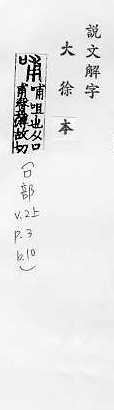 說文解字
大徐本
哺 哺咀也从口
甫聲薄故切
(口部
v.2上
p.3
b.10)